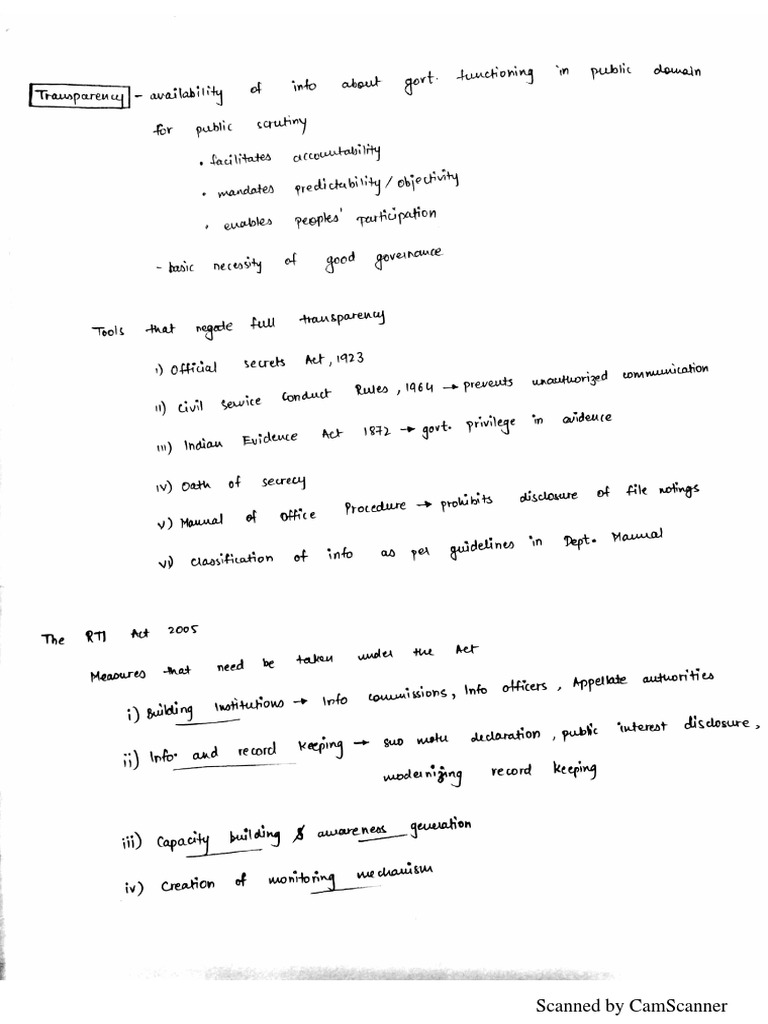 Transparency - availability of info about govt. functioning in public domain
for public scrutiny
• facilitates accountability
• mandates predictability/objectivity
• enables peoples' participation
- basic necessity of good governance
Tools that negate full transparency
i) Official secrets Act, 1923
ii) Civil Service Conduct Rules, 1964 → prevents unauthorized communication
iii) Indian Evidence Act 1872 → govt. privilege in evidence
iv) Oath of secrecy
v) Manual of Office Procedure → prohibits disclosure of file notings
vi) Classification of info as per guidelines in Dept. Manual
The RTI Act 2005
Measures that need be taken under the Act
i) Building Institutions → Info commissions, Info officers, Appellate authorities
ii) Info. and record keeping → suo motu declaration, public interest disclosure,
modernizing record keeping
iii) Capacity building & awareness generation
iv) Creation of monitoring mechanism
Scanned by CamScanner